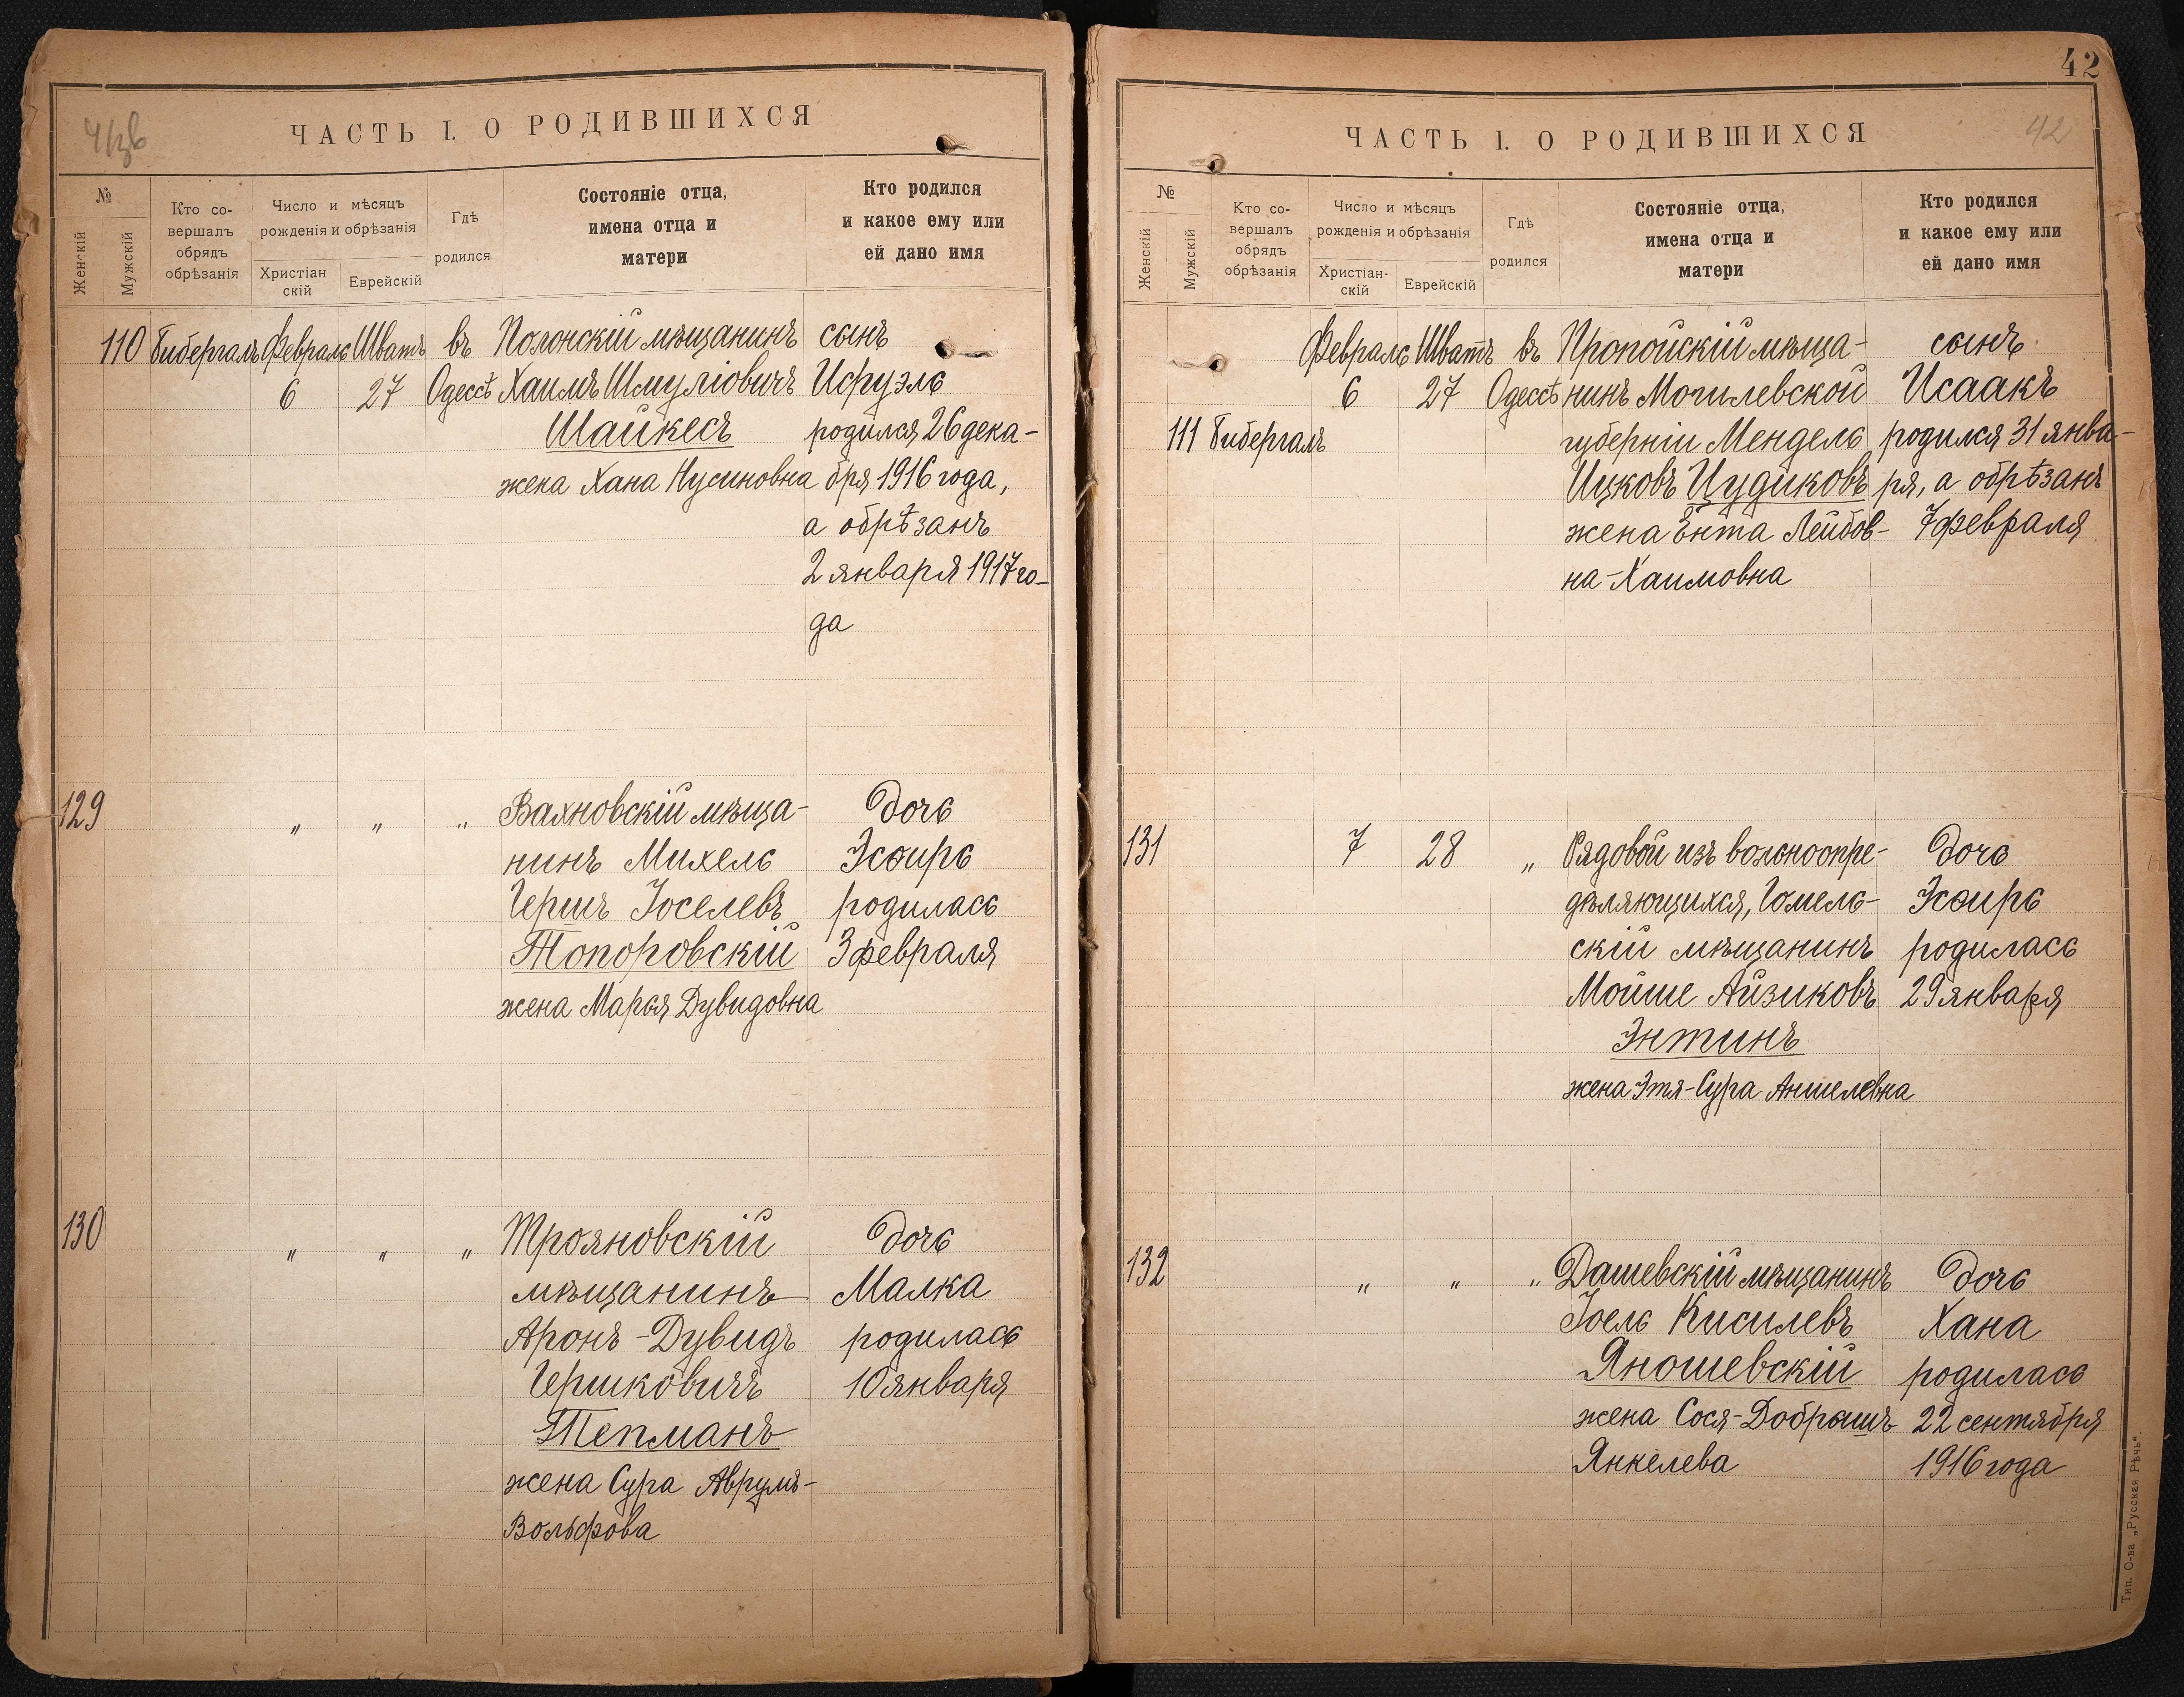 ЧАСТЬ I. О РОДИВШИХСЯ
№
Женскій
Мужскій
Кто со-
вершалъ
обрядъ
обрѣзанія
Число и мѣсяцъ
рожденія и обрѣзанія
Христіан
скій
Еврейскій
Гдѣ
родился
Состояніе отца,
имена отца и
матери
Кто родился
и какое ему или
ей дано имя
110 Бибергалъ Февраль Шватъ въ Полонскій мѣщанинъ сынъ
6 27 Одессѣ Хаимъ Шмуліовичъ Исруэль
Шайкесъ родился 26 дека-
жена Хана Нусиновна бря 1916 года,
а обрѣзанъ
2 января 1917 го-
да
129 " " " Вахновскій мѣща- дочь
нинъ Михель Эсѳирь
Гершъ Іоселевъ родилась
Топоровскій 3 февраля
жена Марья Дувидовна
130 " " " Трояновскій дочь
мѣщанинъ Малка
Аронъ-Дувидъ родилась
Гершковичъ 10 января
Тепманъ
жена Сура Аврумъ-
Вольфова
42
ЧАСТЬ I. О РОДИВШИХСЯ
42
№
Женскій
Мужскій
Кто со-
вершалъ
обрядъ
обрѣзанія
Число и мѣсяцъ
рожденія и обрѣзанія
Христіан-
скій
Еврейскій
Гдѣ
родился
Состояніе отца,
имена отца и
матери
Кто родился
и какое ему или
ей дано имя
Февраль Шватъ въ Пропойскій мѣща- сынъ
6 27 Одессѣ нинъ Могилевской Исаакъ
111 Бибергалъ губерніи Мендель родился 31 янва-
Ицковъ Цудиковъ ря, а обрѣзанъ
жена Ента Лейбов- 7 февраля
на-Хаимовна
131 7 28 " Рядовой изъ вольноопре- дочь
дѣляющихся, Гомель- Эсѳирь
скій мѣщанинъ родилась
Мойше Айзиковъ 29 января
Энтинъ
жена Этя-Сура Аншелевна
132 " " " Дашевскій мѣщанинъ дочь
Іоель Кисилевъ Хана
Яношевскій родилась
жена Сося-Добрышъ 22 сентября
Янкелева 1916 года
Тип. О-ва „Русская Рѣчь“.